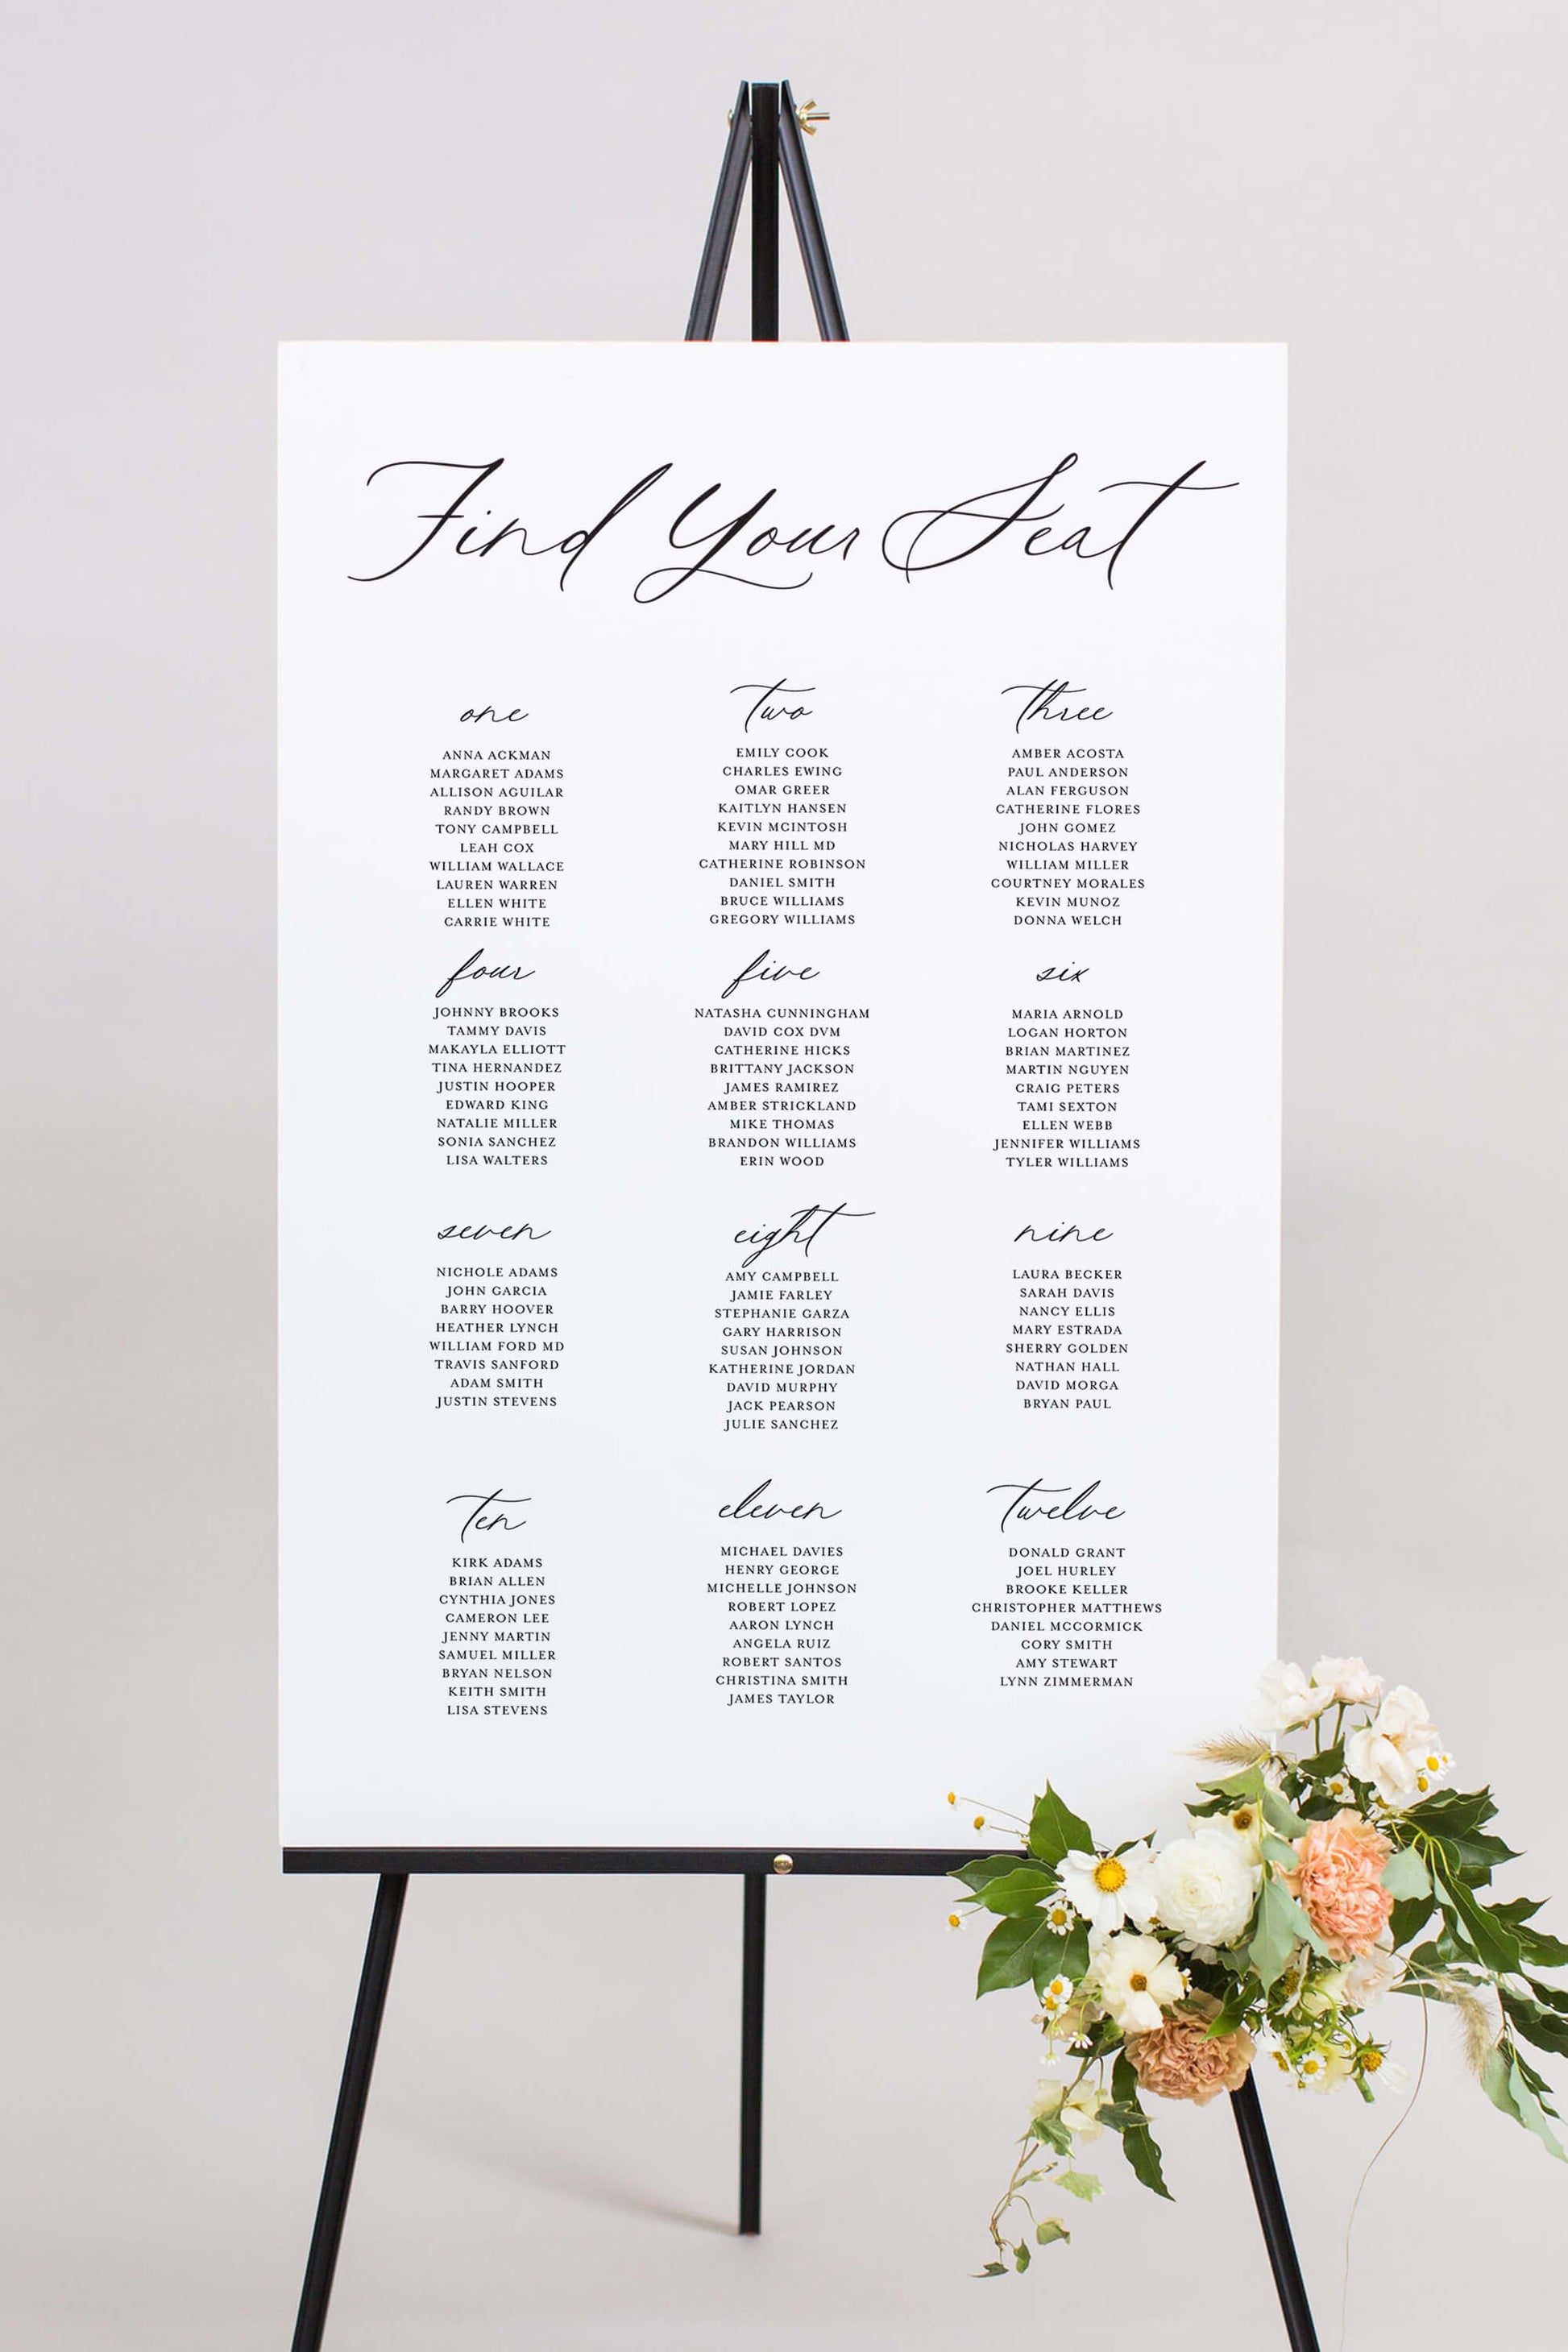 Find Your Seat
one
ANNA ACKMAN
MARGARET ADAMS
ALLISON AGUILAR
RANDY BROWN
TONY CAMPBELL
LEAH COX
WILLIAM WALLACE
LAUREN WARREN
ELLEN WHITE
CARRIE WHITE
Two
EMILY COOK
CHARLES EWING
OMAR GREER
KAITLYN HANSEN
KEVIN MCINTOSH
MARY HILL MD
CATHERINE ROBINSON
DANIEL SMITH
BRUCE WILLIAMS
GREGORY WILLIAMS
Three
AMBER ACOSTA
PAUL ANDERSON
ALAN FERGUSON
CATHERINE FLORES
JOHN GOMEZ
NICHOLAS HARVEY
WILLIAM MILLER
COURTNEY MORALES
KEVIN MUNOZ
DONNA WELCH
four
JOHNNY BROOKS
TAMMY DAVIS
MAKAYLA ELLIOTT
TINA HERNANDEZ
JUSTIN HOOPER
EDWARD KING
NATALIE MILLER
SONIA SANCHEZ
LISA WALTERS
five
NATASHA CUNNINGHAM
DAVID COX DVM
CATHERINE HICKS
BRITTANY JACKSON
JAMES RAMIREZ
AMBER STRICKLAND
MIKE THOMAS
BRANDON WILLIAMS
ERIN WOOD
six
MARIA ARNOLD
LOGAN HORTON
BRIAN MARTINEZ
MARTIN NGUYEN
CRAIG PETERS
TAMI SEXTON
ELLEN WEBB
JENNIFER WILLIAMS
TYLER WILLIAMS
seven
NICHOLE ADAMS
JOHN GARCIA
BARRY HOOVER
HEATHER LYNCH
WILLIAM FORD MD
TRAVIS SANFORD
ADAM SMITH
JUSTIN STEVENS
eight
AMY CAMPBELL
JAMIE FARLEY
STEPHANIE GARZA
GARY HARRISON
SUSAN JOHNSON
KATHERINE JORDAN
DAVID MURPHY
JACK PEARSON
JULIE SANCHEZ
nine
LAURA BECKER
SARAH DAVIS
NANCY ELLIS
MARY ESTRADA
SHERRY GOLDEN
NATHAN HALL
DAVID MORGA
BRYAN PAUL
Ten
KIRK ADAMS
BRIAN ALLEN
CYNTHIA JONES
CAMERON LEE
JENNY MARTIN
SAMUEL MILLER
BRYAN NELSON
KEITH SMITH
LISA STEVENS
eleven
MICHAEL DAVIES
HENRY GEORGE
MICHELLE JOHNSON
ROBERT LOPEZ
AARON LYNCH
ANGELA RUIZ
ROBERT SANTOS
CHRISTINA SMITH
JAMES TAYLOR
Twelve
DONALD GRANT
JOEL HURLEY
BROOKE KELLER
CHRISTOPHER MATTHEWS
DANIEL MCCORMICK
CORY SMITH
AMY STEWART
LYNN ZIMMERMAN